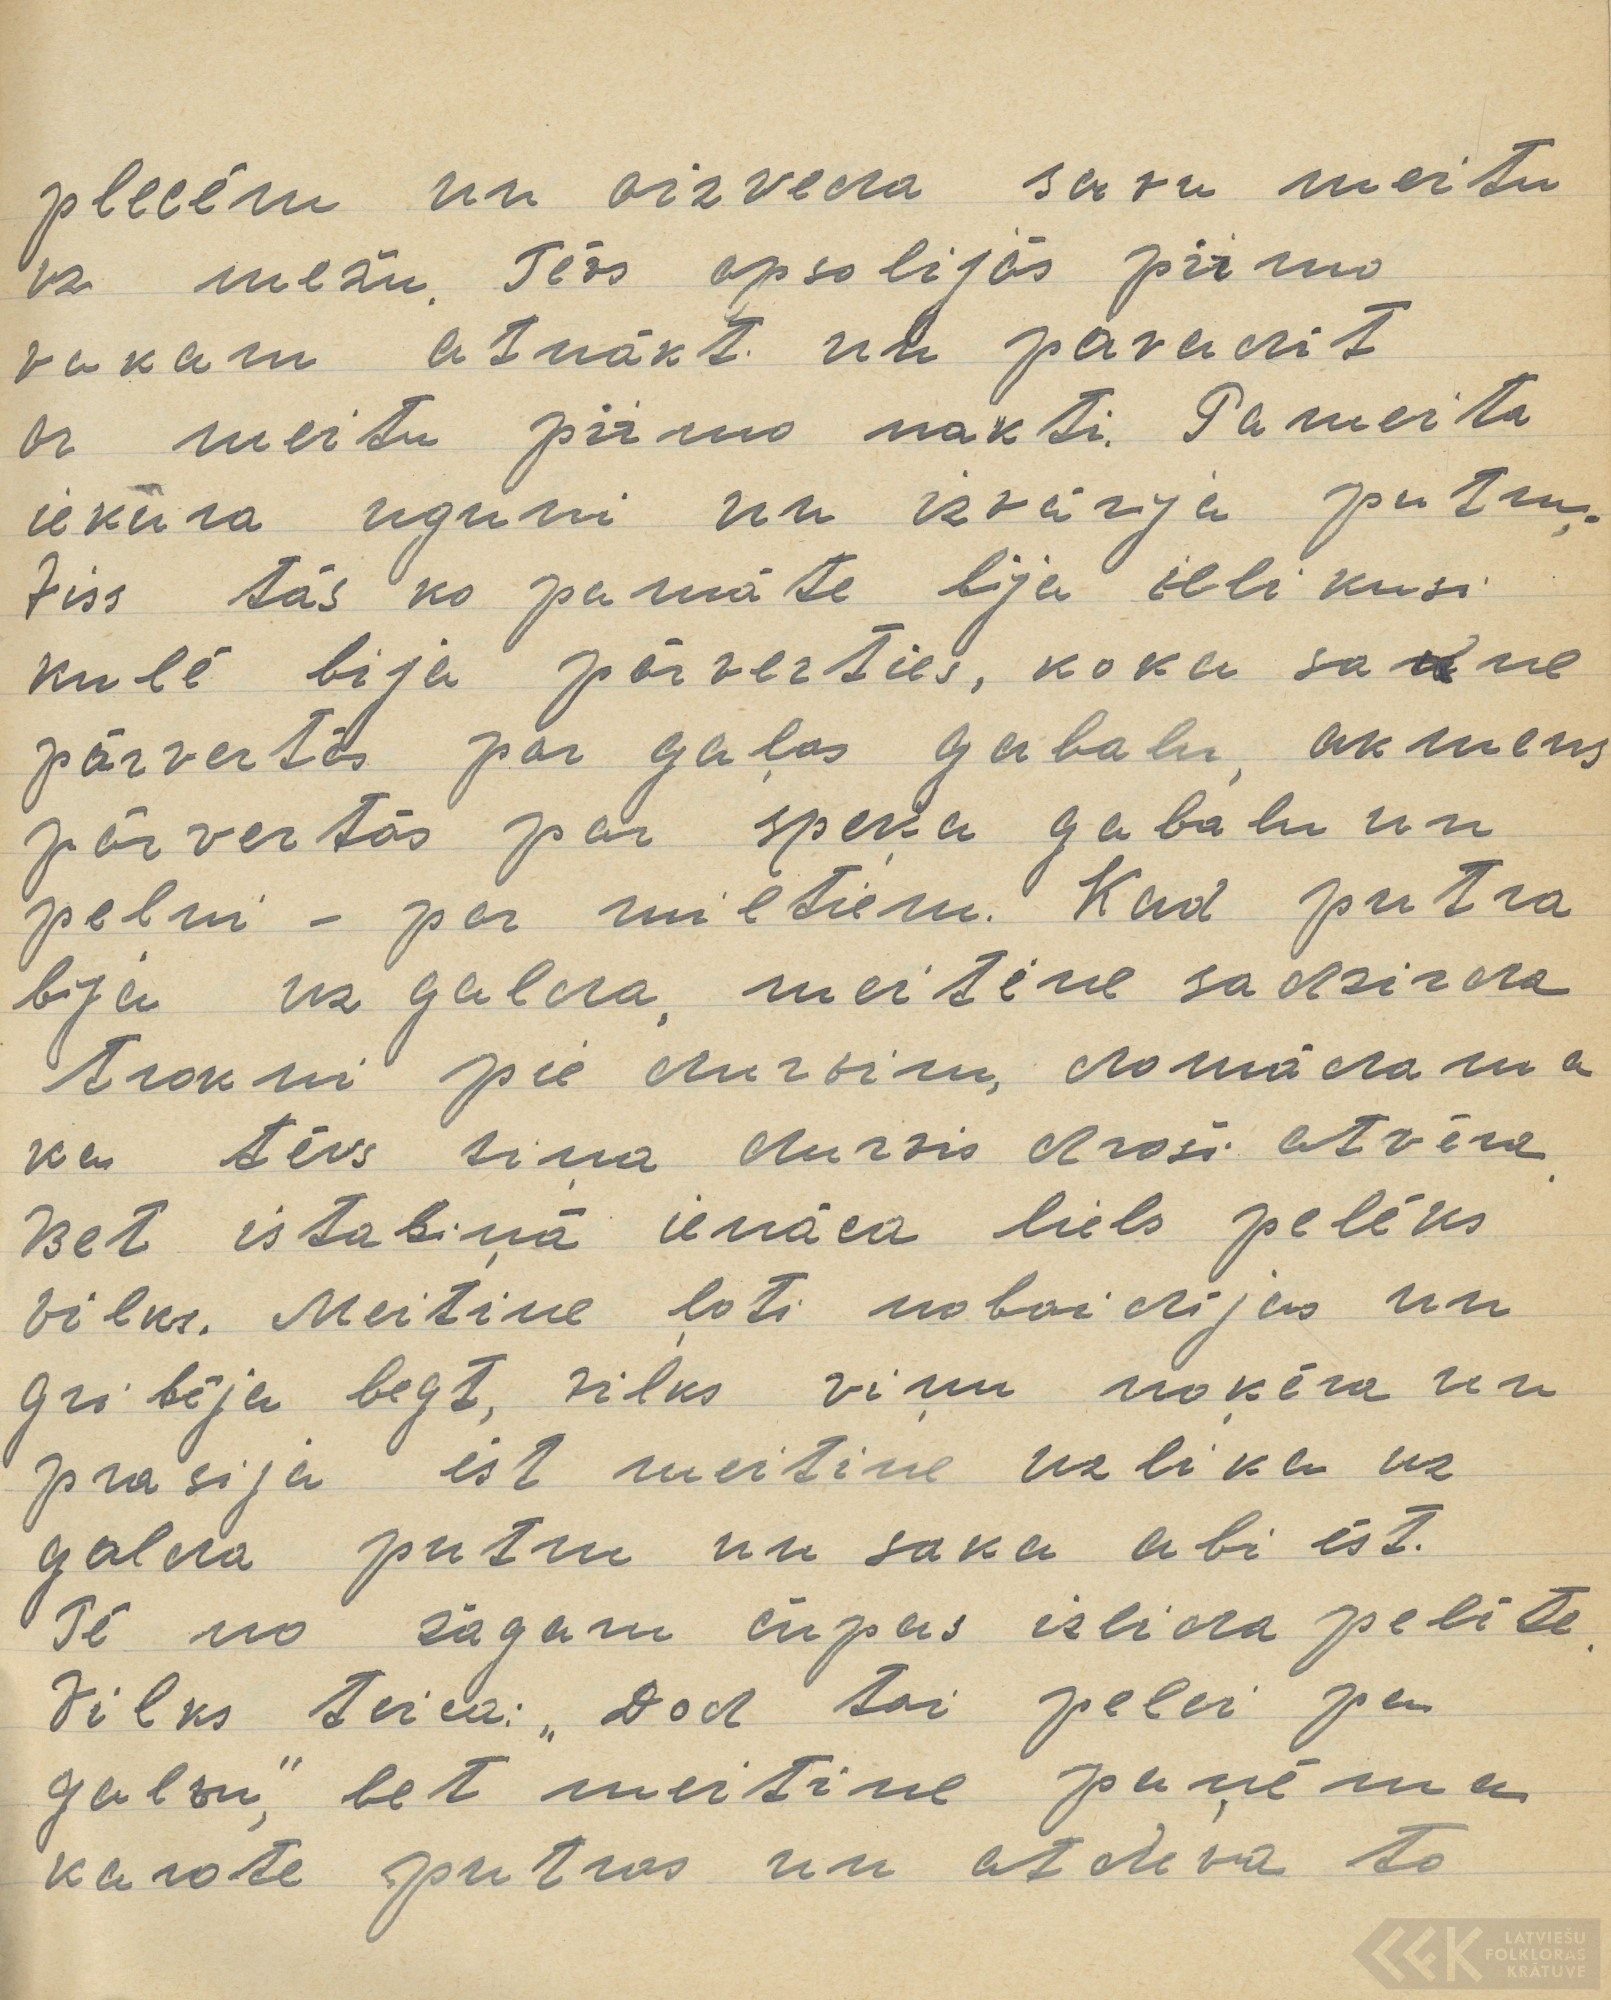 plecēm un aizveda savu meitu
uz mežu. Tēvs apsolijās pirmo
vakaru atnākt un pavadit
ar meitu pirmo nakti. Pameita
iekūra uguni un izvārija putru.
Viss tās ko pamāte bija ielikusi
kulē bija pārvērties, koka sakne
pārvertās par gaļas gabalu, akmens
pārvertās par speķa gabalu un
pelni - par miltiem. Kad putra
bija uz galda, meitene sadzirda
troksni pie durvim, domādama
ka tēvs viņa durvis droši atvēra.
Bet istabiņā ienāca liels pelēks
vilks. Meitine ļoti nobaidijas un
gribēja begt, vilks viņu noķēra un
prasija ēst meitine uzlika uz
galda putru un saka abi ēst.
Tē no žagaru čupas izlida pelīte.
Vilks teica: „Dod tai pelei pa
galvu," bet meitine paņēma
karote putras un atdeva to
LATVIEŠU
FOLKLORAS
KRĀTUVE